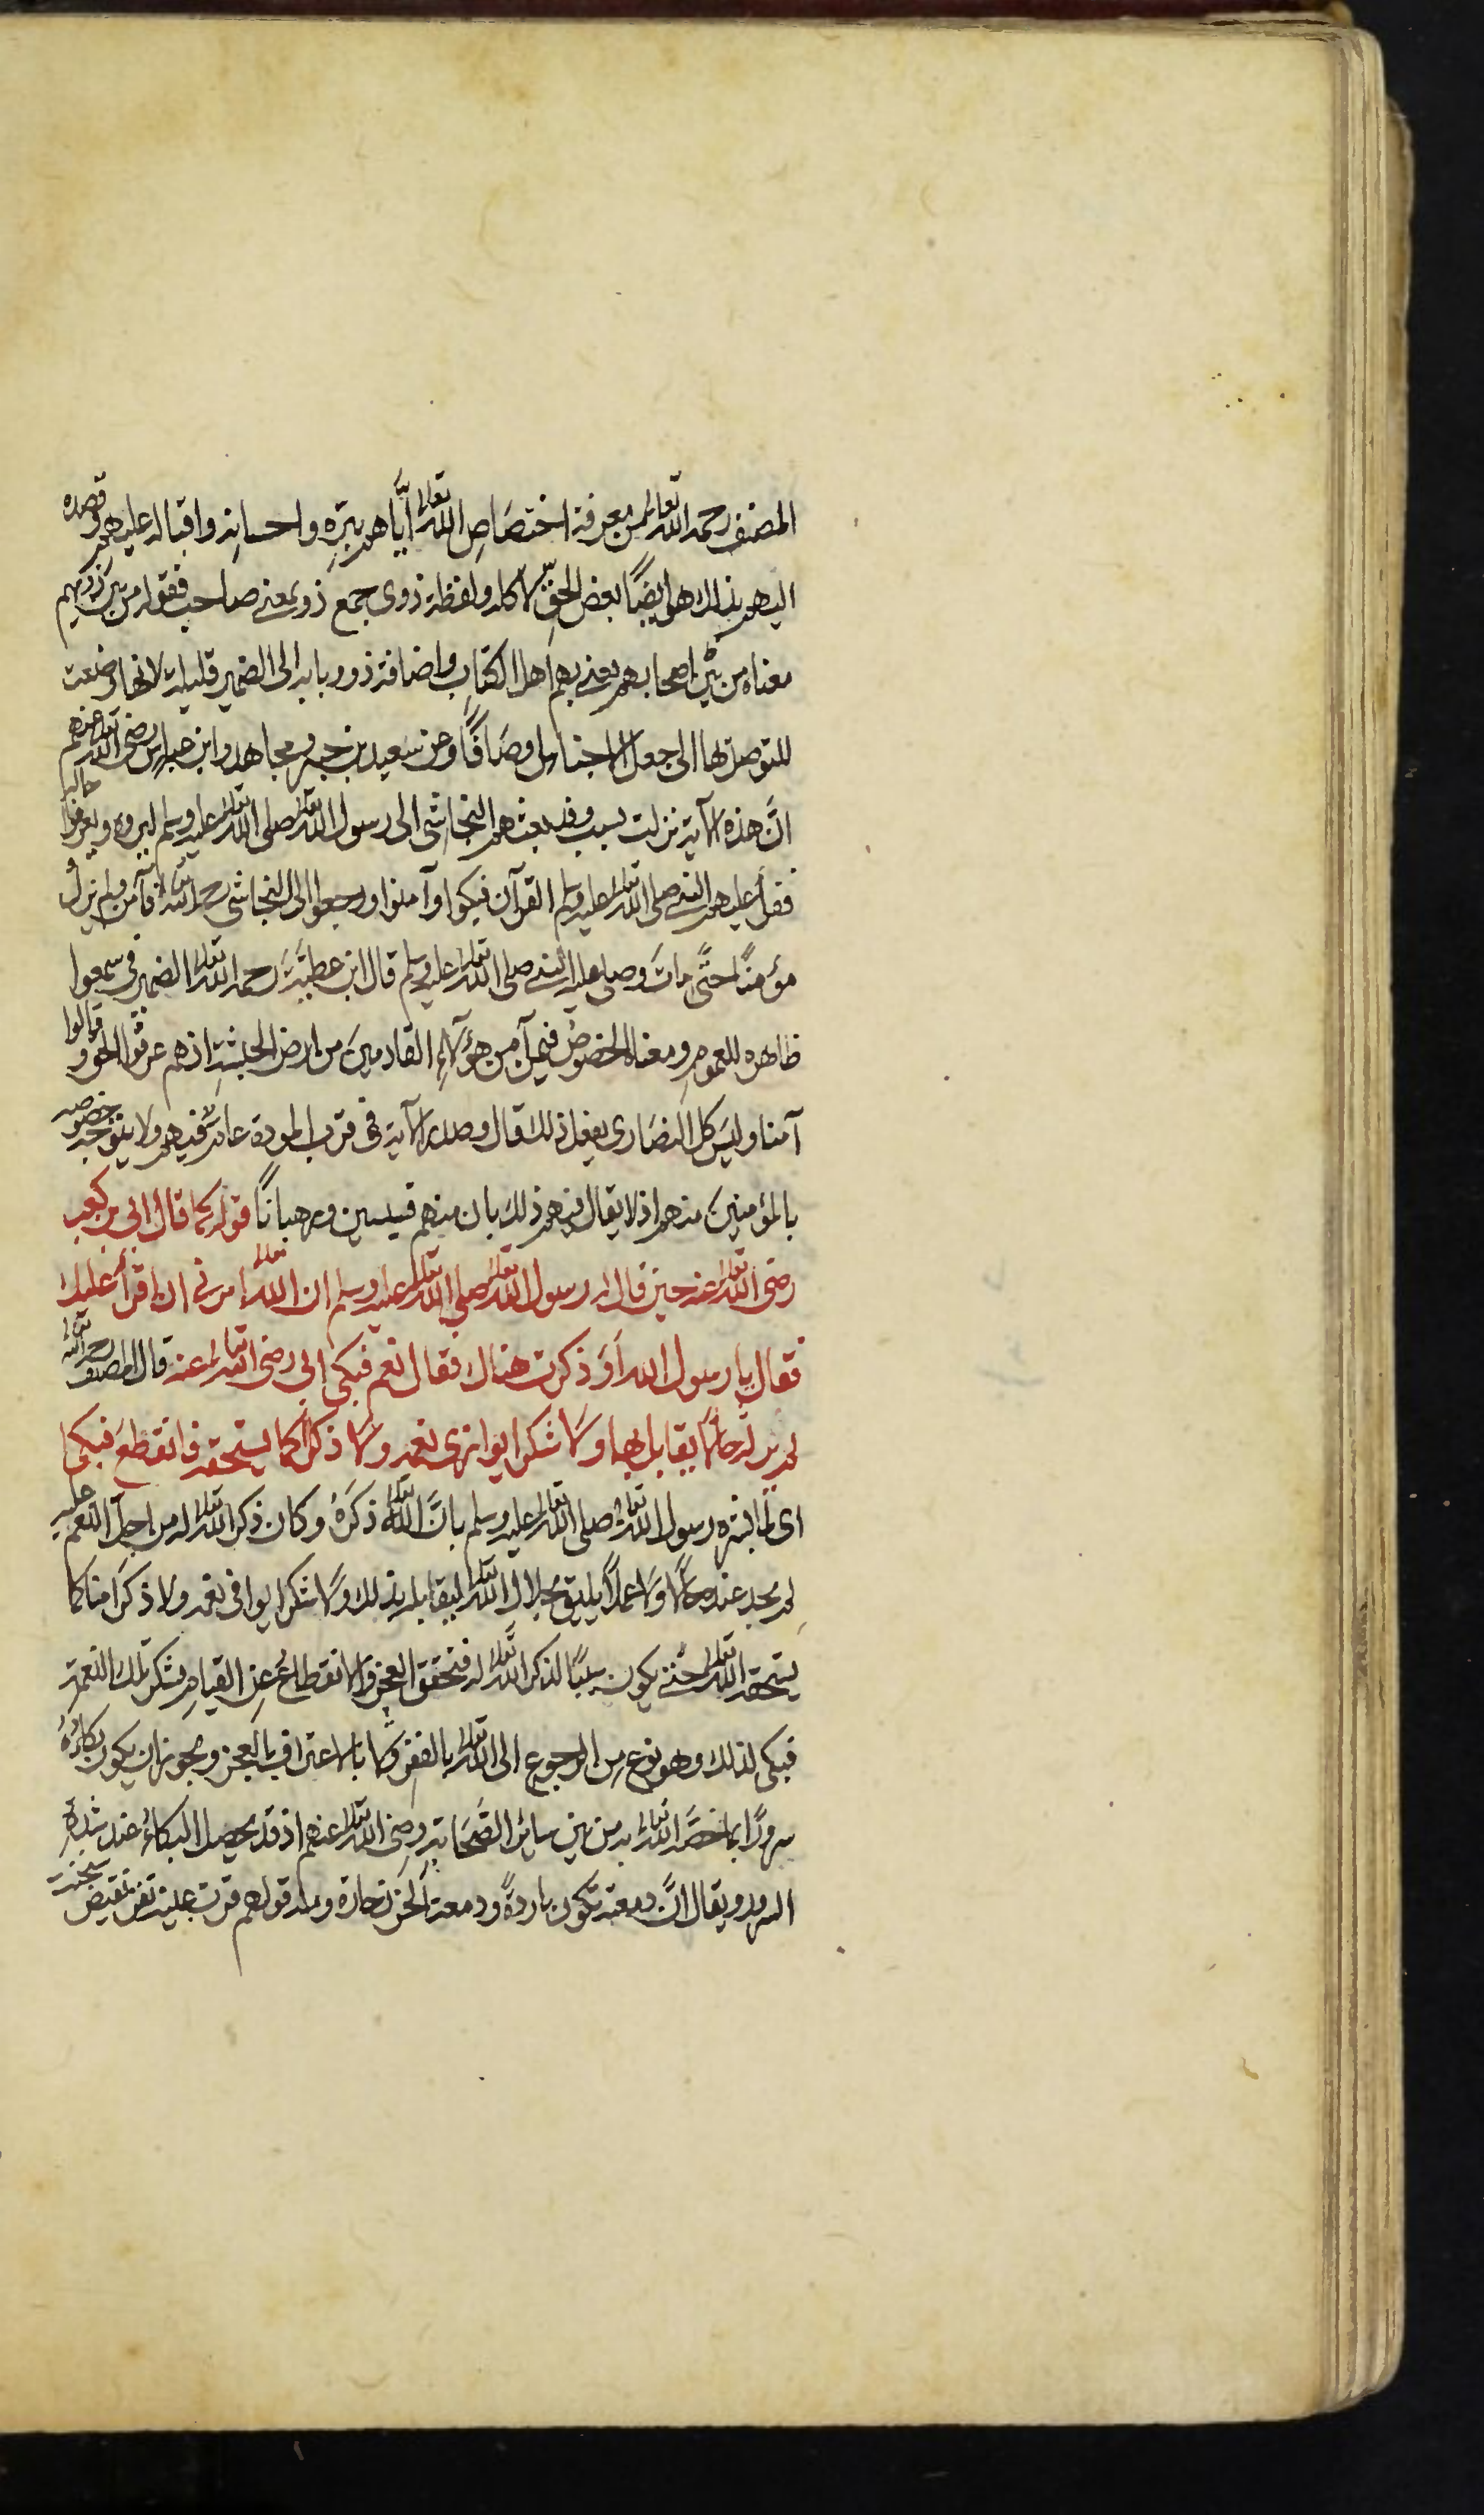 المصنف رحمه الله تعالى من معرفة اختصاص الله تعالى اياهم ببره واحسانه واقباله عليهم وقصده
اليهم بذلك هو ايضًا بعض الحق لا كله ولفظة ذوى جمع ذو بمعنى صاحب فقوله من بين ذويهم
معناه من بين اصحابهم يعنى بهم اهل الكتاب واضافة ذو وبابه الى الضمير قليلة لانها وضعت
للتوصل بها الى جعل الاجناس اوصافًا وعن سعيد بن جبير ومجاهد وابن عباس رضى الله تعالى عنهم
انّ هذه الآية نزلت بسبب وفد بعثهم النجاشى الى رسول الله تعالى صلى الله تعالى عليه وسلم ليروه ويعرفوا حاله
فقرأ عليهم النبى صلى الله تعالى عليه وسلم القرآن فبكوا وآمنوا ورجعوا الى النجاشى رحمه الله تعالى فآمن ولم يزل
مؤمنًا حتّى مات وصلى عليه النبى صلى الله تعالى عليه وسلم قال ابن عطيّة رحمه الله تعالى الضمير فى سمعوا
ظاهره للعموم ومعناه الخصوص فيمن آمن من هؤلاء القادمين من ارض الحبشة اذهم عرفوا الحق وقالوا
آمنا وليس كل النصارى يفعل ذلك قال وصدر الآية فى قرب المودة عامّ فيهم ولا يتوجه خصوصه
بالمؤمنين منهم اذ لا يقال فيهم ذلك بان منهم قسيسين ورهبانًا قوله كما قال ابى بن كعب
رضى الله تعالى عنه حين قال له رسول الله تعالى صلى الله تعالى عليه وسلم ان الله تعالى امرنى ان اقرأ عليك
فقال يا رسول الله اَوَ ذكرت هنالك فقال نعم فبكى ابى رضى الله تعالى عنه قال المصنف رحمه الله تعالى
لم ير له حالًا يقابل بها ولا شكرا يوازى نعمه ولا ذكرًا كما يستحقه فانقطع فبكى
اى لما بشره رسول الله تعالى صلى الله تعالى عليه وسلم بانّ الله تعالى ذكرهُ وكان ذكر الله تعالى له من اجل النعم عليه
لم يجد عنده حالًا ولا عملًا يليق بجلال الله تعالى ليقابله بذلك ولا شكرا يوافى نعمه ولا ذكرًا منا كما
يستحقه الله تعالى حتى يكون سببًا لذكر الله تعالى له فتحقق العجز والانقطاع عن القيام بشكر تلك النعمة
فبكى لذلك وهو نوع من الرجوع الى الله تعالى بالفقر والاعتراف بالعجز ويجوز ان يكون بكاؤهُ
سرورًا بما خصّه الله تعالى به من بين سائر الصّحابة رضى الله تعالى عنهم اذ قد يحصل البكاءُ عند شدة
السرور ويقال انّ دمعته تكون باردةً ودمعة الحزن حارة ومنه قولهم قرت عينه نقيض سخنت